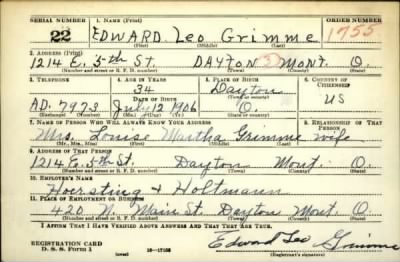 SERIAL NUMBER 1. NAME (Print) ORDER NUMBER
22 EDWARD Leo Grimme 1755
(First) (Middle) (Last)
2. ADDRESS (Print)
1214 E. 5th St. DAYTON 2 MONT. O.
(Number and street or R. F. D. number) (Town) (County) (State)
3. TELEPHONE 4. AGE IN YEARS 5. PLACE OF BIRTH 6. COUNTRY OF CITIZENSHIP
34 Dayton
DATE OF BIRTH (Town or county)
AD. 7973 July 12 1906 O. US
(Exchange) (Number) (Mo.) (Day) (Yr.) (State or country)
7. NAME OF PERSON WHO WILL ALWAYS KNOW YOUR ADDRESS 8. RELATIONSHIP OF THAT PERSON
Mrs. Louis Martha Grimme wife
(Mr., Mrs., Miss) (First) (Middle) (Last)
9. ADDRESS OF THAT PERSON
1214 E. 5th St. Dayton Mont. O.
(Number and street or R. F. D. number) (Town) (County) (State)
10. EMPLOYER'S NAME
Hoersting & Holtmann
11. PLACE OF EMPLOYMENT OR BUSINESS
420 N. Main St. Dayton Mont. O.
(Number and street or R. F. D. number) (Town) (County) (State)
I AFFIRM THAT I HAVE VERIFIED ABOVE ANSWERS AND THAT THEY ARE TRUE.
REGISTRATION CARD
D. S. S. Form 1
Edward Leo Grimme
(Registrant's signature)